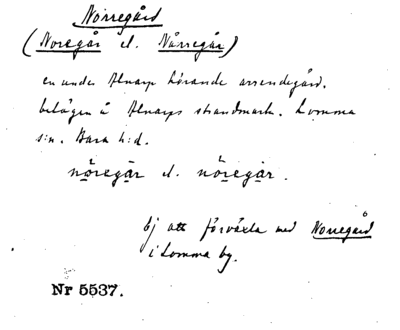 Norregård
(Noregår el. Nårregår)
en under Alnarp hörande arrendegård.
belägen å Alnarps strandmark. Lomma
s:n. Bara h:d.
nöregår el. nöregår.
Ej att förväxla med Norregård
i Lomma by.
Nr 5537.